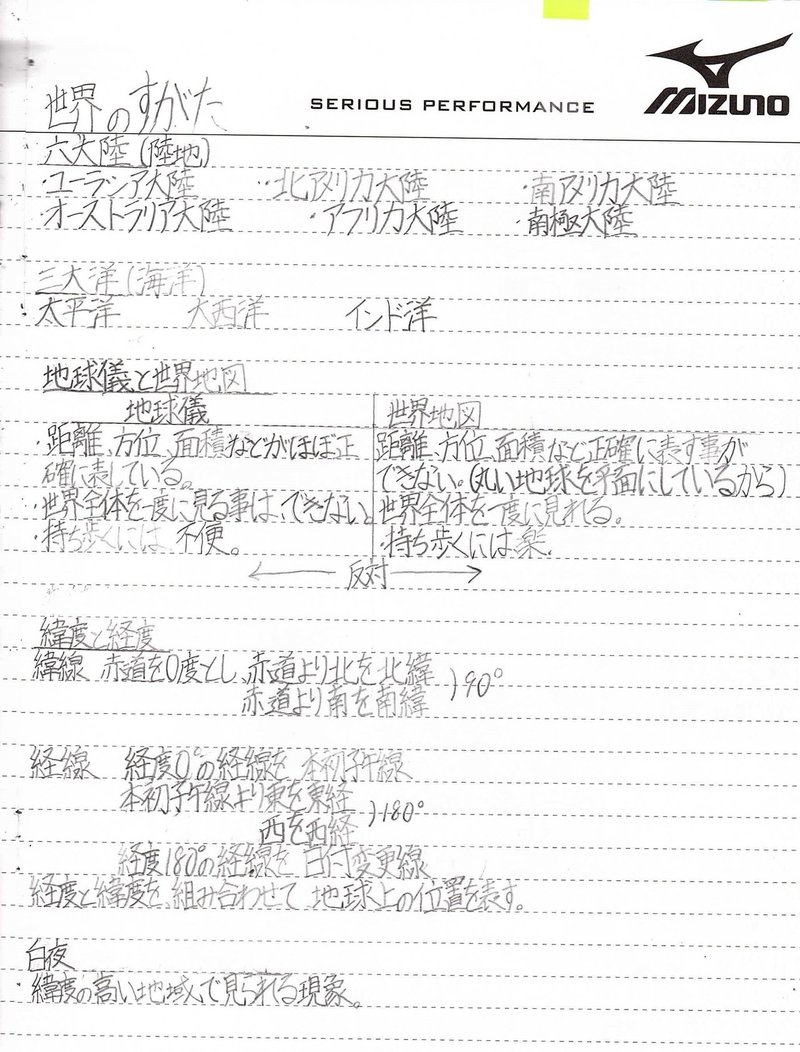 SERIOUS PERFORMANCE
MIZUNO
世界のすがた
六大陸(陸地)
・ユーラシア大陸 ・北アメリカ大陸 ・南アメリカ大陸
・オーストラリア大陸 ・アフリカ大陸 ・南極大陸
三大洋(海洋)
太平洋 大西洋 インド洋
地球儀と世界地図
地球儀 世界地図
・距離、方位、面積などがほぼ正
確に表している。
・世界全体を一度に見る事は、できない。
・持ち歩くには、不便。
距離、方位、面積など正確に表す事が
できない。(丸い地球を平面にしているから)
世界全体を一度に見れる。
・持ち歩くには楽。
← 反対 →
緯度と経度
緯線 赤道を0度とし、赤道より北を北緯
赤道より南を南緯 )90°
経線 経度0°の経線を 本初子午線
本初子午線より東を東経
西を西経 )180°
経度180°の経線を 日付変更線
経度と緯度を、組み合わせて 地球上の位置を表す。
白夜
緯度の高い地域で見られる現象。